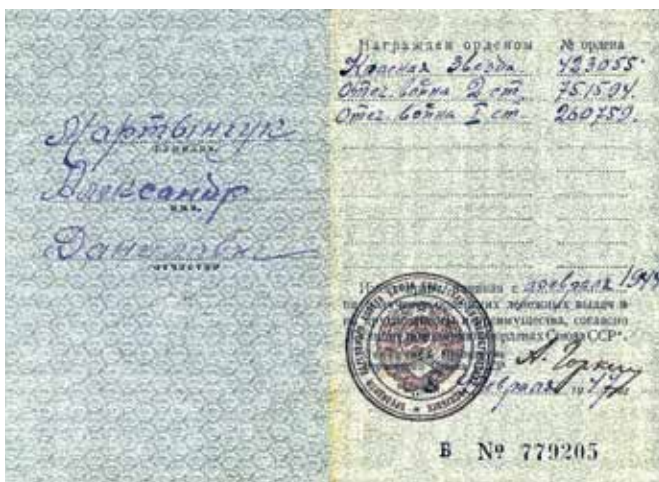 Мартынчук
фамилия
Александр
имя
Данилович
отчество
Награжден орденом № ордена
Красная Звезда 423055
Отеч. война 2 ст. 751504.
Отеч. война I ст. 260759.
с февраля 194
денежных выдач и
преимущества, согласно
орденах Союза ССР".
А. Горкин
февраля 1947
Б № 779205